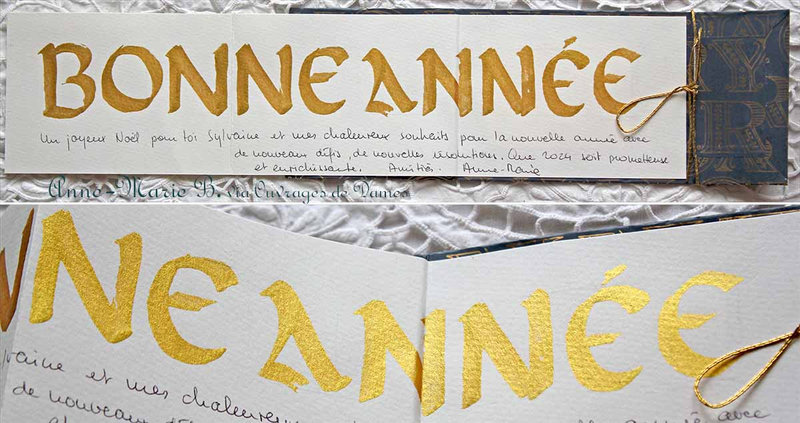 BONNE ANNÉE
Un joyeux Noël pour toi Sylvaine et mes chaleureux souhaits pour la nouvelle année avec
de nouveaux défis, de nouvelles Que 2024 soit prometteuse
et enrichissante. Amitiés. Anne-Marie
Anne-Marie B. via Ouvrages de Dames
NE ANNÉE
vaine et mes chaleureux
de nouveaux
année avec